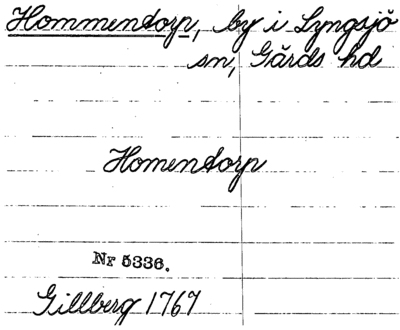 Hommentorp, by i Lyngsjö
sn, Gärds hd
Homentorp
Nr 5336.
Gillberg 1767